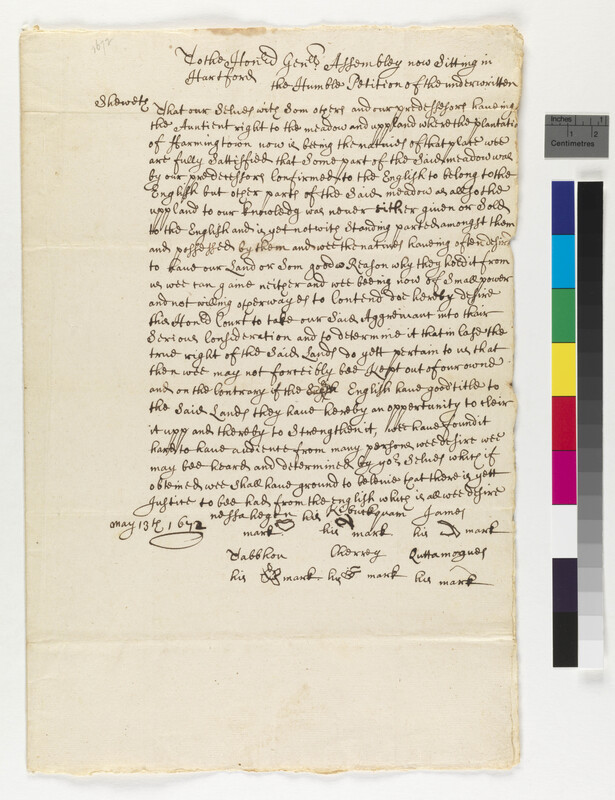 1672
To the Honrd Genrll Assembley now Sitting in
Hartford the Humble Petition of the underwritten
Sheweth
That our Selves with Som others and our predessesors haveing
the Auntient right to the meadow and uppland where the plantatio
of Farmingtown now is being the nattives of that place wee
are fully Sattisfied that Some part of the Said meadow was
by our predetessors Confirmed to the English to belong to the
English but other parts of the Said meadow as allso the
uppland to our knowledg was never either given or Sold
to the English and is yet notwith Standing parted amongst them
and possessed by them and wee the natives haveing often desired
to have our Land or Som good Reason why they hold it from
us wee can gaine neither and wee beeing now of Small power
and not willing otherwayes to Contend doe hereby desire
this Honrd Court to take our Said Aggreivant into thair
Serious Consideration and to determine it that in Case the
true right of the Said Lands do yett pertain to us that
then wee may not forceibly bee Kept out of our owne
and on the Contrary if the English have good title to
the Said Lands they have hereby an opportunity to cleir
it upp and thereby to Strengthen it, wee have found it
hard to have audience from many persons wee desire wee
may bee heard and determined by yor Selves which if
obteined wee Shall have ground to beleive that there is yett
Justice to bee had from the English which is all wee desire
nessahegen his Kehuckquam James
May 13th, 1672
mark his mark his mark
Tabbhou Cherrey Quttamogues
his mark his mark his mark
Inches 1 2
Centimetres